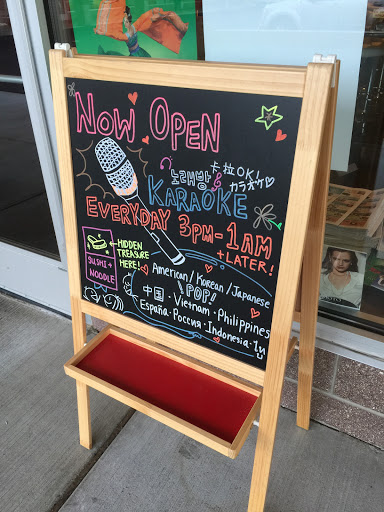 NOW OPEN
노래방 卡拉OK!
カラオケ
KARAOKE
EVERYDAY 3PM-1AM
+ LATER!
HIDDEN
TREASURE
HERE!
SUSHI +
NOODLE
American / Korean / Japanese
POP!
中国 · Vietnam · Philippines
España · Россия · Indonesia